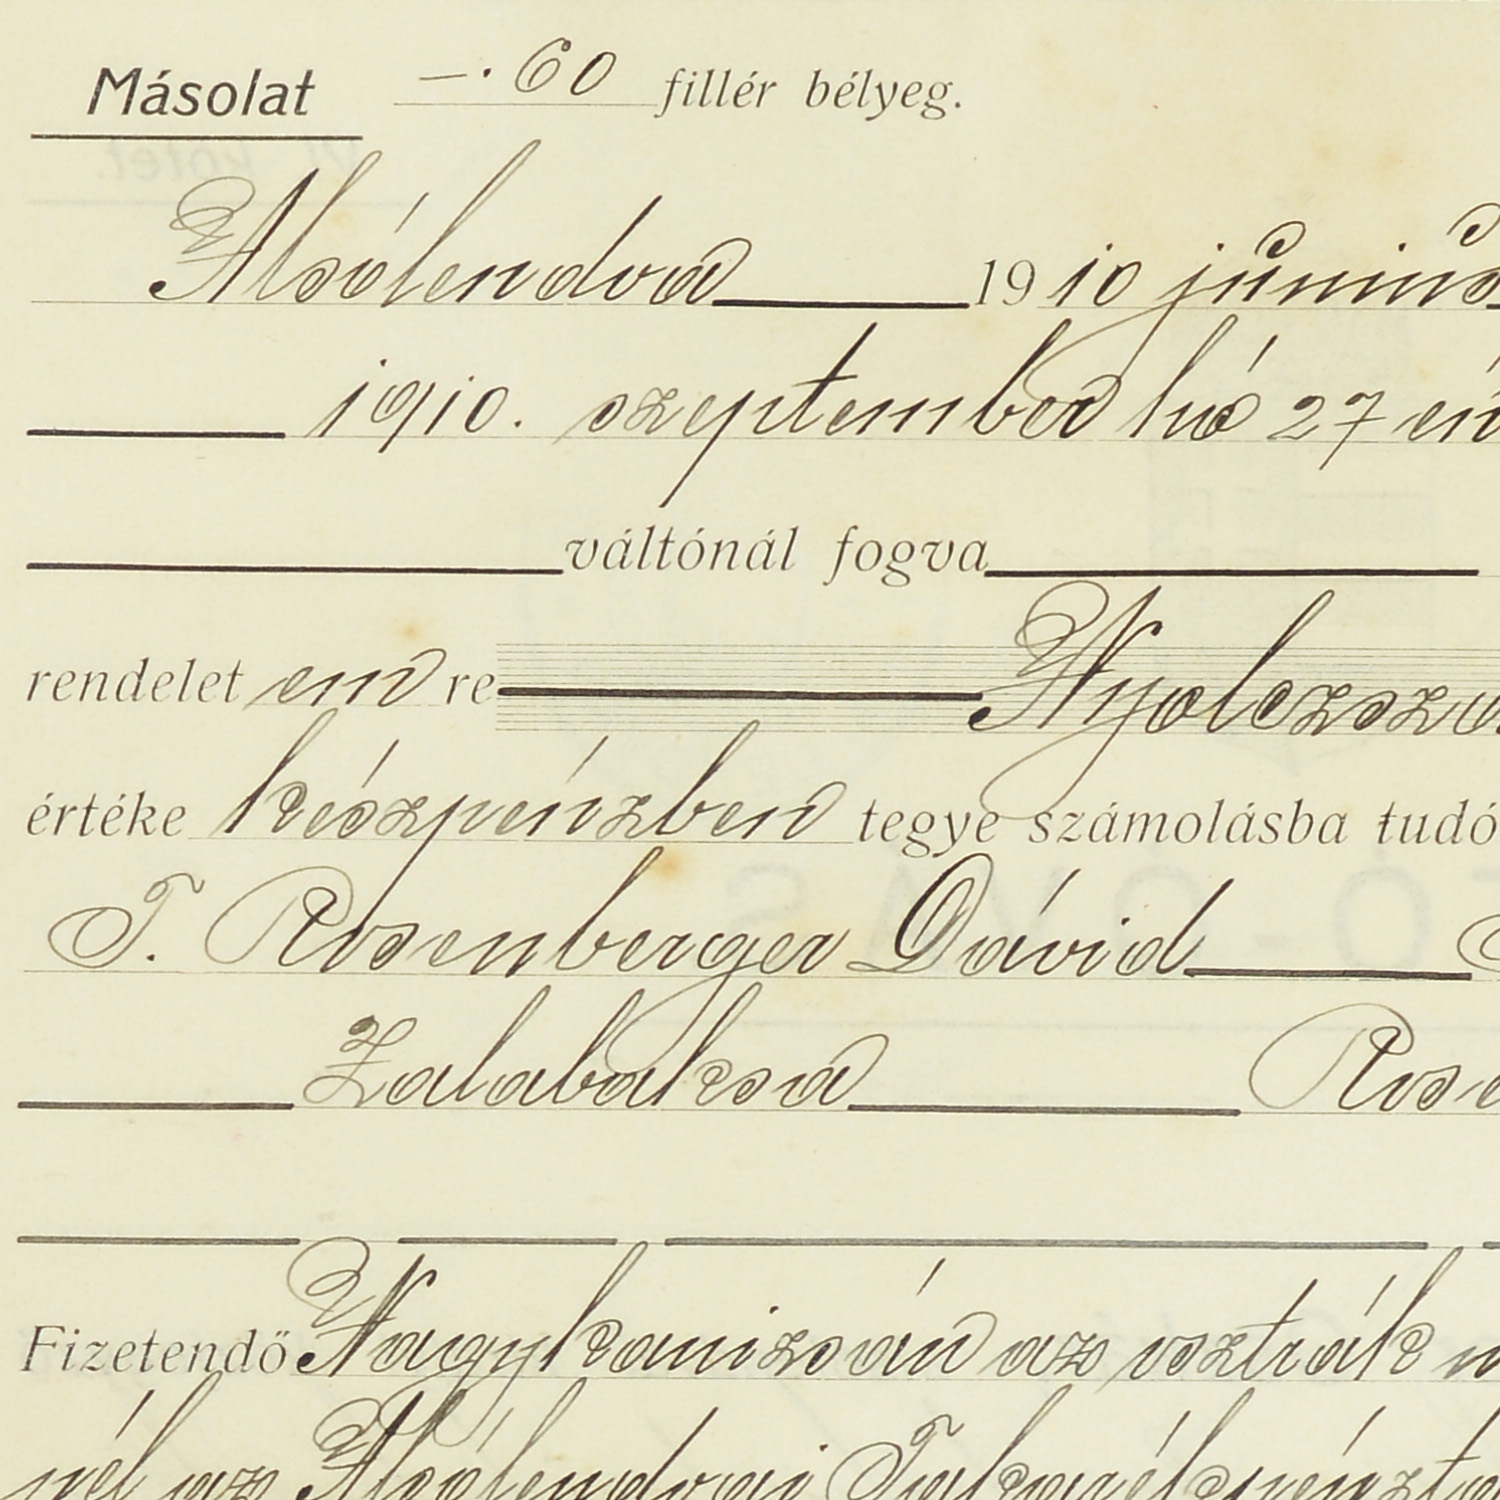 Másolat —.60 fillér bélyeg.
Alsólendva 1910 június
1910. szeptember hó 27 én
váltónál fogva
rendelet em re Nyolczszá
értéke készpénzben tegye számolásba tudó
T. Rosenberger Dávid
Zalabaksa Rose
Fizetendő Nagykanizsán az osztrák m
nél az Alsólendvai Takarékpénzta